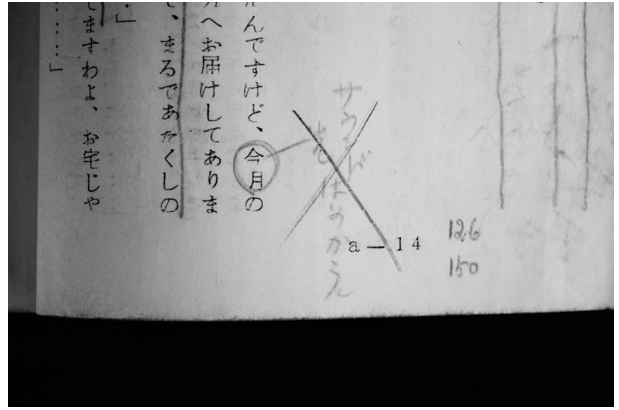 んですけど、今月の
へお届けしてありま
、まるであたくしの
…」
てますわよ、お宅じゃ
……」
サウンド
a—14
126
150